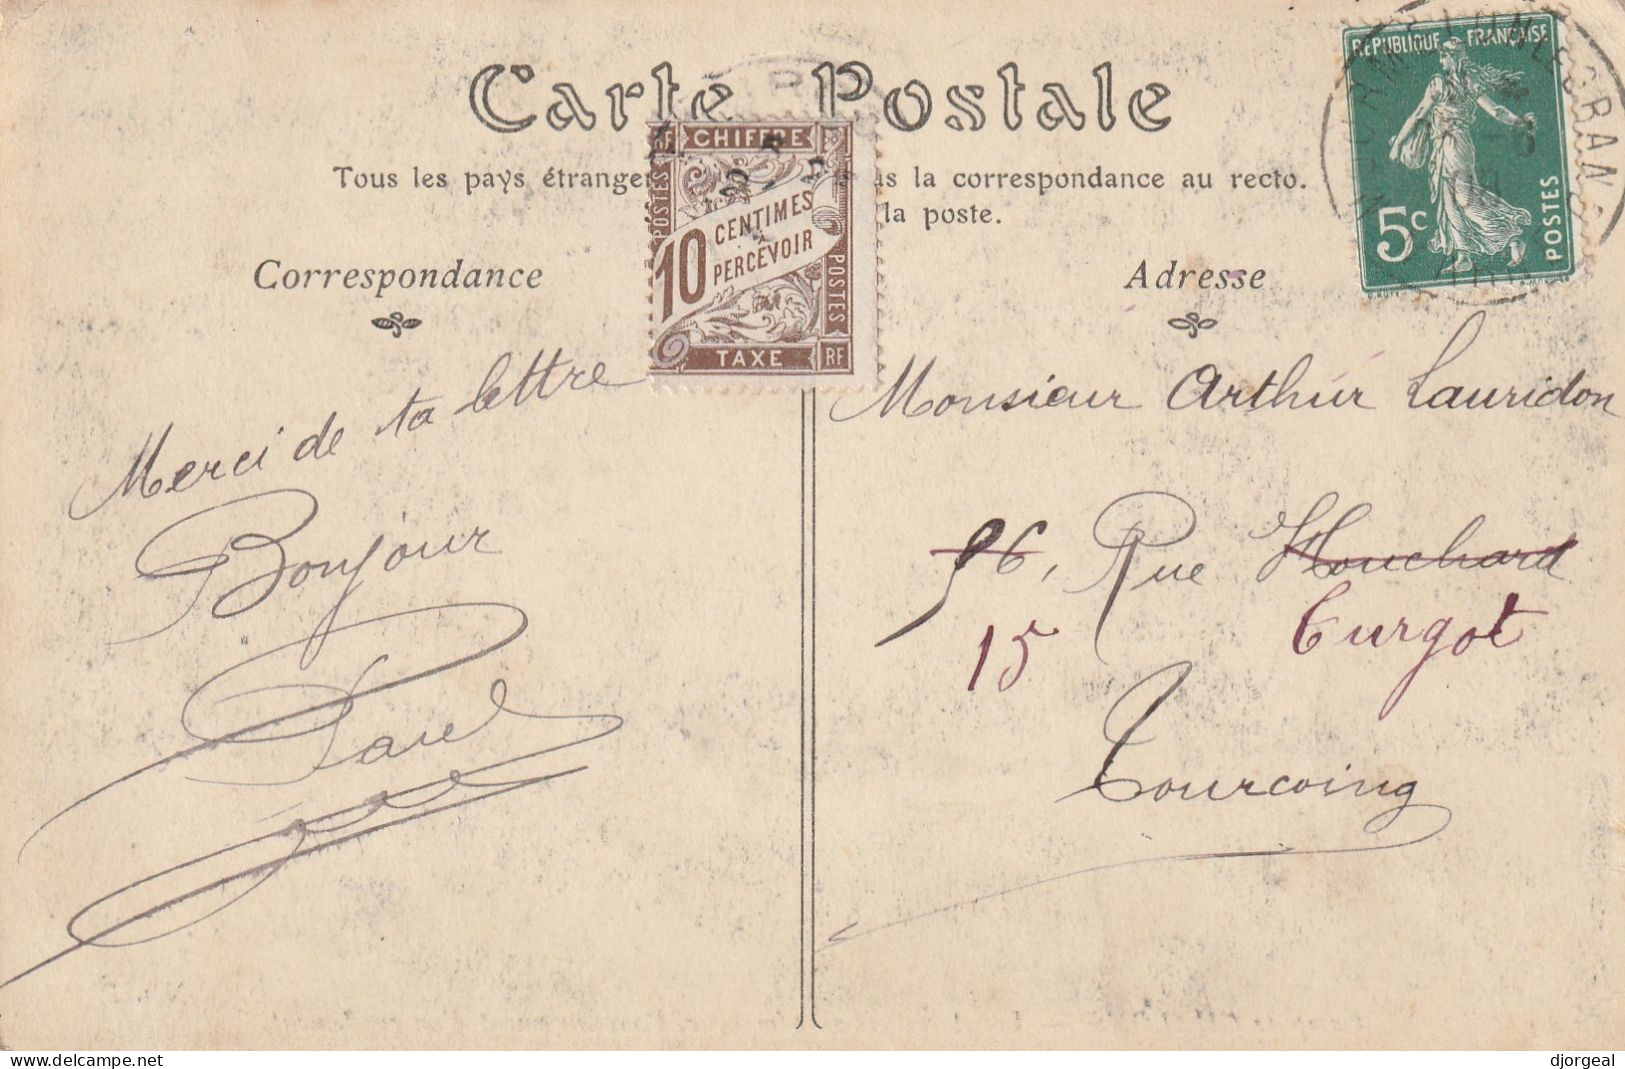 Carte Postale
Tous les pays étranger as la correspondance au recto.
la poste.
Correspondance
Adresse
RF CHIFFRE
POSTES
10 CENTIMES
À
PERCEVOIR
POSTES
TAXE RF
REPUBLIQUE FRANÇAISE
5c
POSTES
Merci de ta lettre
Bonjour
Monsieur Arthur Lauridon
96, Rue Houchard
15 Turgot
Tourcoing
Delcampe.net
djorgeal